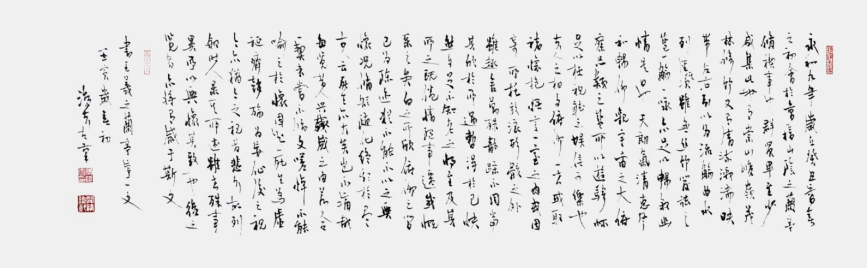 永和九年歲在癸丑暮春
之初會于會稽山陰之蘭亭
脩稧事也群賢畢至少
咸集此地有崇山峻嶺茂
林脩竹又有清流激湍映
帶左右引以為流觴曲水
列坐其次雖無絲竹管弦之
盛一觴一詠亦足以暢敘幽
情是日也天朗氣清惠風
和暢仰觀宇宙之大俯
察品類之盛所以遊目騁懷
足以極視聽之娛信可樂也
夫人之相與俯仰一世或取
諸懷抱悟言一室之內或因
寄所託放浪形骸之外
雖趣舍萬殊靜躁不同當
其欣於所遇暫得於己快
然自足不知老之將至及其
所之既倦情隨事遷感慨
係之矣向之所欣俛仰之間
已為陳迹猶不能不以之興
懷況脩短隨化終期於盡
古人云死生亦大矣豈不痛哉
每覽昔人興感之由若合
一契未嘗不臨文嗟悼不能
喻之於懷固知一死生為虛
誕齊彭殤為妄作後之視
今亦猶今之視昔悲夫故列
敘時人錄其所述雖世殊事
異所以興懷其致一也後之
覽者亦將有感于斯文
書王羲之蘭亭序一文
壬寅歲春初